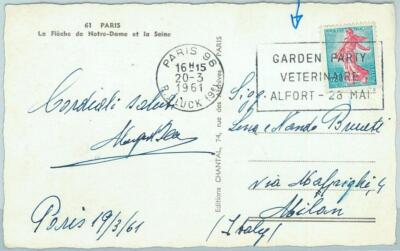 61 PARIS
La Flèche de Notre-Dame et la Seine
PARIS 96
16H15
20-3
1961
R. GLUCK (9E)
GARDEN PARTY
VETERINAIRE
ALFORT - 28 MAI
Cordiali saluti
Paris 19/3/61
Editions CHANTAL, 74, rue des Archives, PARIS
Sigg.
Lina e Nando Brunetti
via Malpighi, 4
Milan
(Italy)